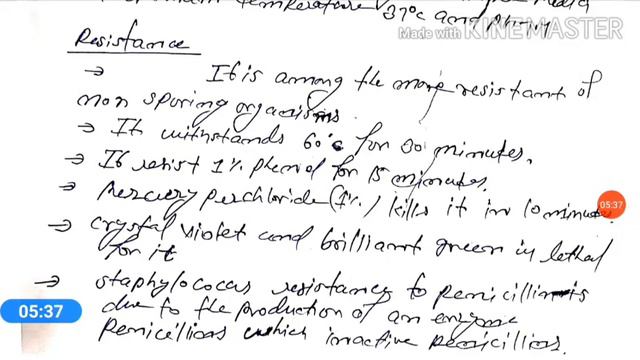 temperature 37°c and
Made with KINEMASTER
Resistance
→ It is among the more resistant of
non sporing organisms.
→ It withstands 60°c for 30 minutes.
→ It resist 1% phenol for 15 minutes.
→ Mercury perchloride (1%) kills it in 10 minutes
05:37
→ crystal violet and brilliant green in lethal
for it
→ staphylococcus resistance to penicillin is
05:37
due to the production of an enzyme
Penicillins which inactive penicillins.